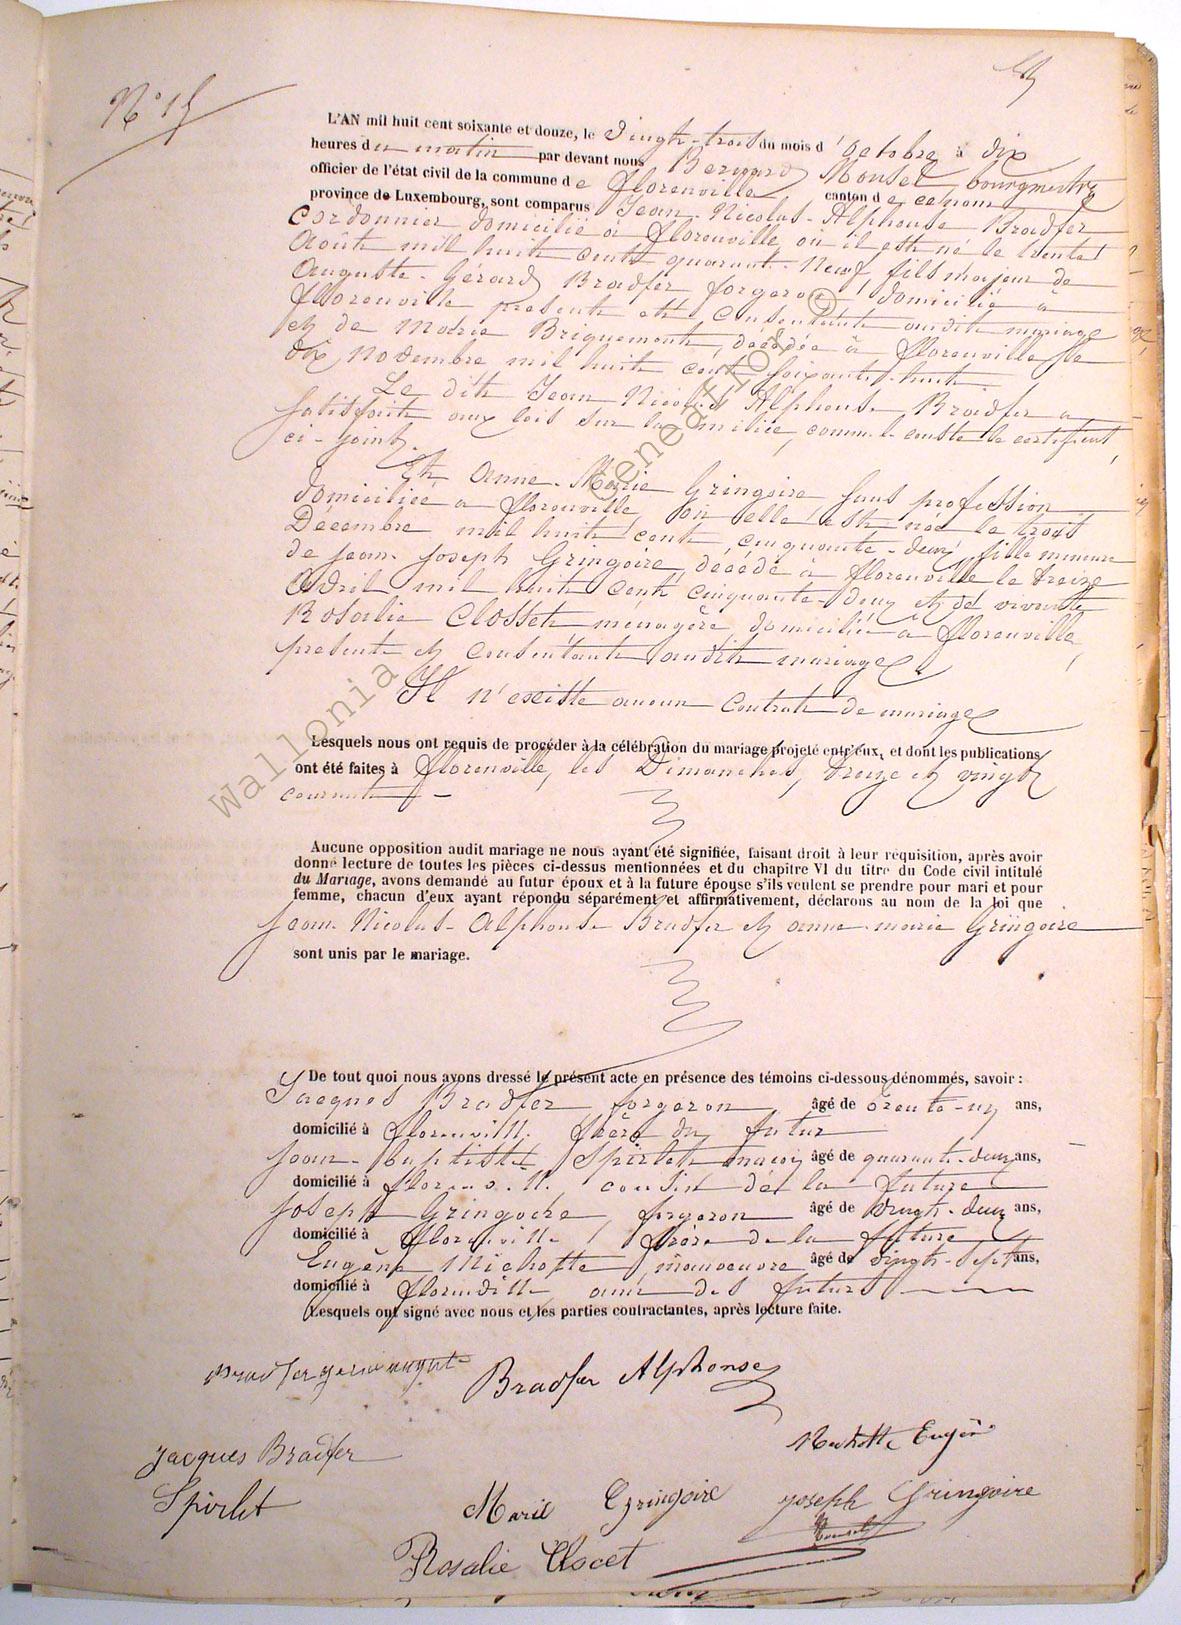 N° 15
L'AN mil huit cent soixante et douze, le Vingt-trois du mois d'octobre à dix
heures du matin par devant nous Bernard Monsel, bourgmestre
officier de l'état civil de la commune de Florenville canton de ce nom
province de Luxembourg, sont comparus Jean-Nicolas-Alphouse Bradfer
cordonnier domicilié à Florenville où il est né le trente
Août mil huit cent quarante-Neuf, fils majeur de
Auguste-Gérard Bradfer forgeron domicilié à
Florenville présent et consentant audit mariage
et de Marie Briquemont, décédée à Florenville le
dix Novembre mil huit cent soixante-huit.
Le dit Jean Nicolas Alphouse Bradfer a
satisfait aux lois sur la milice, comme le conste le certificat
ci-joint.
Et Anne-Marie Gringoire sans profession
domiciliée à Florenville où elle est née le trois
Décembre mil huit cent cinquante-deux, fille mineure
de Jean-Joseph Gringoire, décédé à Florenville le treize
Avril mil huit cent cinquante-deux et de vivante
Rosalie Closset ménagère domiciliée à Florenville,
présente et consentante audit mariage.
Il n'existe aucun contrat de mariage
Lesquels nous ont requis de procéder à la célébration du mariage projeté entr'eux, et dont les publications
ont été faites à Florenville, les Dimanches, treize et vingt
courant
Aucune opposition audit mariage ne nous ayant été signifiée, faisant droit à leur réquisition, après avoir
donné lecture de toutes les pièces ci-dessus mentionnées et du chapitre VI du titre du Code civil intitulé
du Mariage, avons demandé au futur époux et à la future épouse s'ils veulent se prendre pour mari et pour
femme, chacun d'eux ayant répondu séparément et affirmativement, déclarons au nom de la loi que
Jean-Nicolas-Alphouse Bradfer et Anne-Marie Gringoire
sont unis par le mariage.
De tout quoi nous avons dressé le présent acte en présence des témoins ci-dessous dénommés, savoir :
Jacques Bradfer forgeron âgé de trente-un ans,
domicilié à Florenville frère du futur
Jean-Baptiste Spirlet maçon âgé de quarante-deux ans,
domicilié à Florenville cousin de la future
Joseph Gringoire, forgeron âgé de vingt-deux ans,
domicilié à Florenville, frère de la future
Eugène Michotte, manoeuvre âgé de vingt-sept ans,
domicilié à Florenville, ami des futurs
Lesquels ont signé avec nous et les parties contractantes, après lecture faite.
Bradfer Alphonse
Jacques Bradfer
Eugène
Spirlet
Marie Gringoire
Joseph Gringoire
Monsel
Rosalie Clocet
Wallonia Geneaflor ©